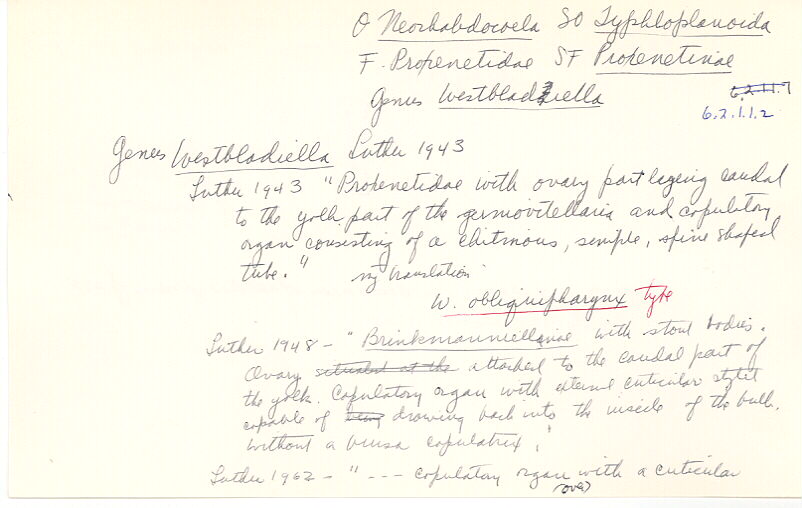 O Neorhabdocoela SO Typhloplanoida
F. Proxenetidae SF Proxenetinae
Genus Westbladiella
6.2.11.7
6.2.1.1.2
Genus Westbladiella Luther 1943
Luther 1943 "Proxenetidae with ovary part lageing caudal
to the yolk part of the germovitellaria and copulatory
organ consisting of a chitinous, simple, spine shaped
tube." my translation
W. obliquipharynx type
Luther 1948 - "Brinkmanniellinae with stout bodies.
Ovary situated at the attached to the caudal part of
the yolk. Copulatory organ with external cuticular stylet
capable of being drawing back into the inside of the bulb.
Without a bursa copulatrix."
Luther 1962 - " --- copulatory organ with a cuticular
(over)